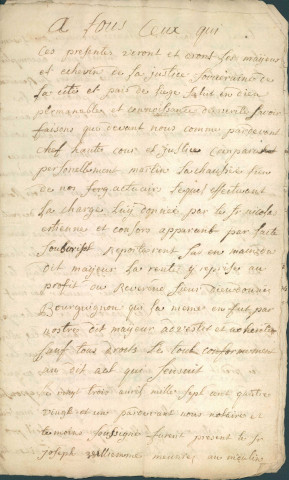 A tous ceux qui
Ces presentes veront et oiront les mayeur
et echevin de la justice souveraine de
la cité et païs de liege salut en dieu
permanable et connoissance de verité savoir
faisons que devant nous comme par devant
chef haute cour et justice comparu
personallement martin
de nos forgacteurs lequel effectuant
la charge luy donnée par le sr nicolas
etienne et consors apparant par l'acte
souscript reporterent sus en main du
dit mayeur la rente y reprise au
profit du Reverend sieur dieudonné
Bourguignon que la meme en fut par
nostre dit mayeur advestit et
sauf tous droits le tout conformement
au dit act que sensuit
may trois avril mille sept cent quattre
vingt et un pardevant nous notaire et
temoins soussigné furent present le sr
joseph meunier au moulin